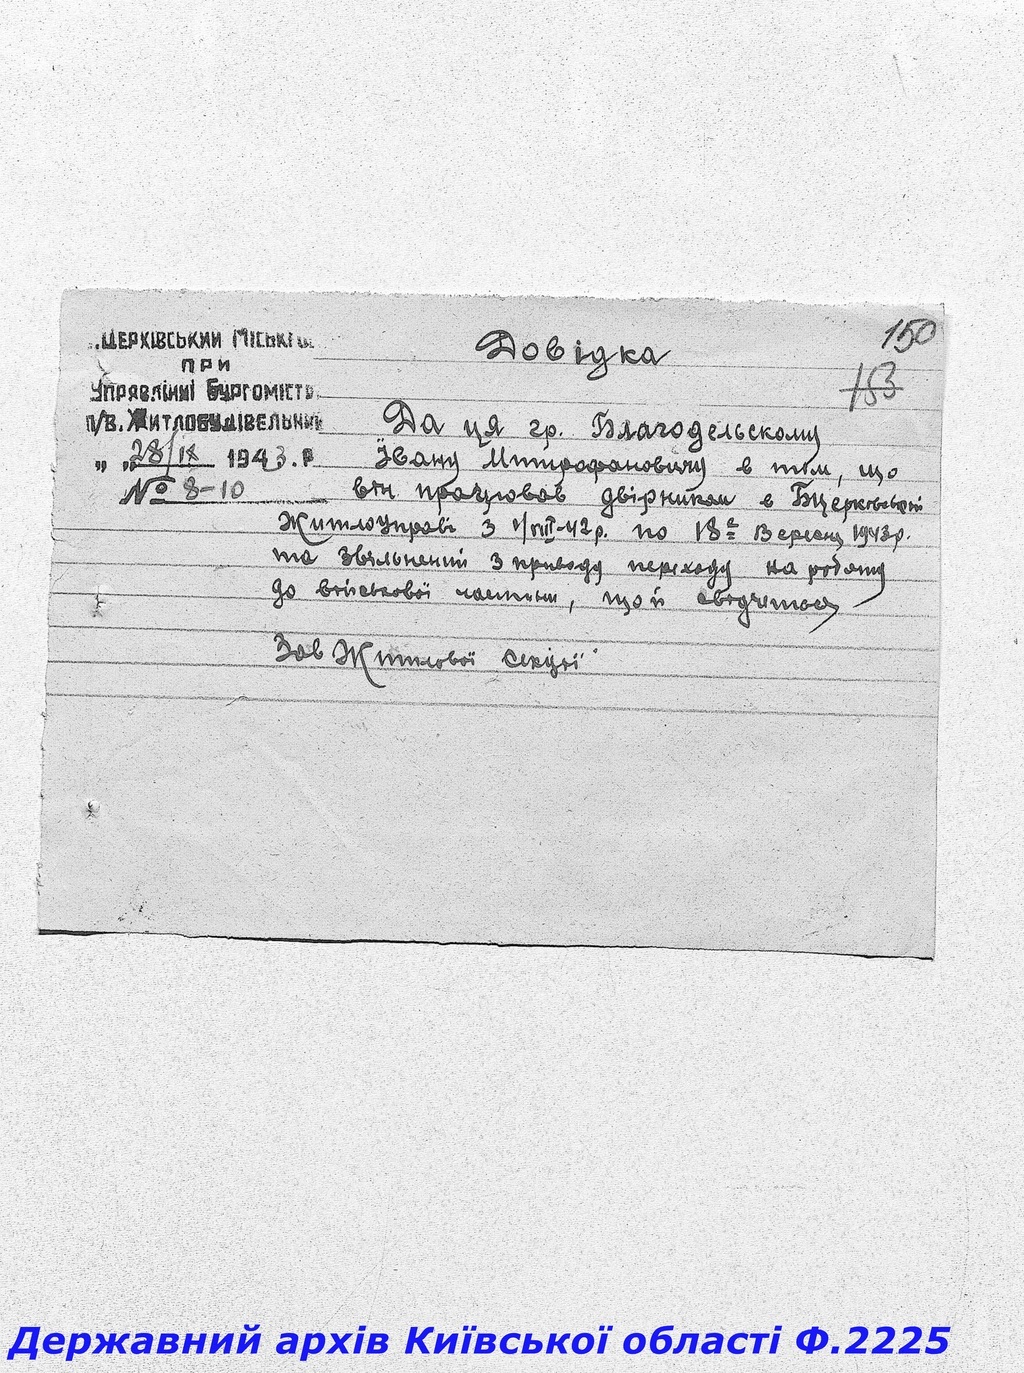 150
153
.ЦЕРКІВСЬКИЙ МІСЬК
ПРИ
УПРАВЛІННІ БУРГОМІСТР
П/В. ЖИТЛОБУДІВЕЛЬНИЙ
" „28/IX 1943.Р
№ 8-10
Довідка
Да ця гр. Благодельскому
Івану Митрофановичу в тім, що
він працював двірником в БЦерківській
Житлоуправі з 1/VIII-42р. по 18го Вересня 1943р.
та звільнений з приводу переходу на роботу
до військової частини, що й свідчиться
Зав Житлової Секції
Державний архів Київської області Ф.2225